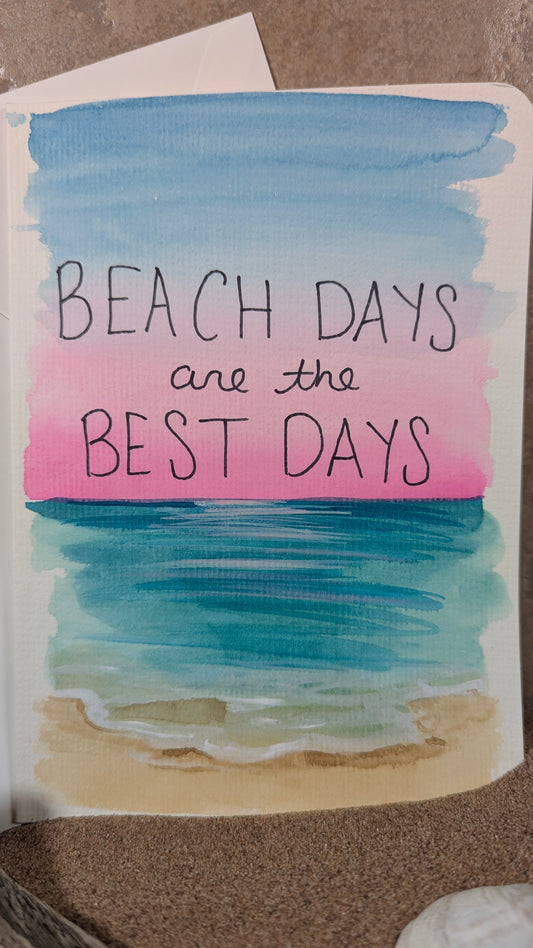 BEACH DAYS
are the
BEST DAYS